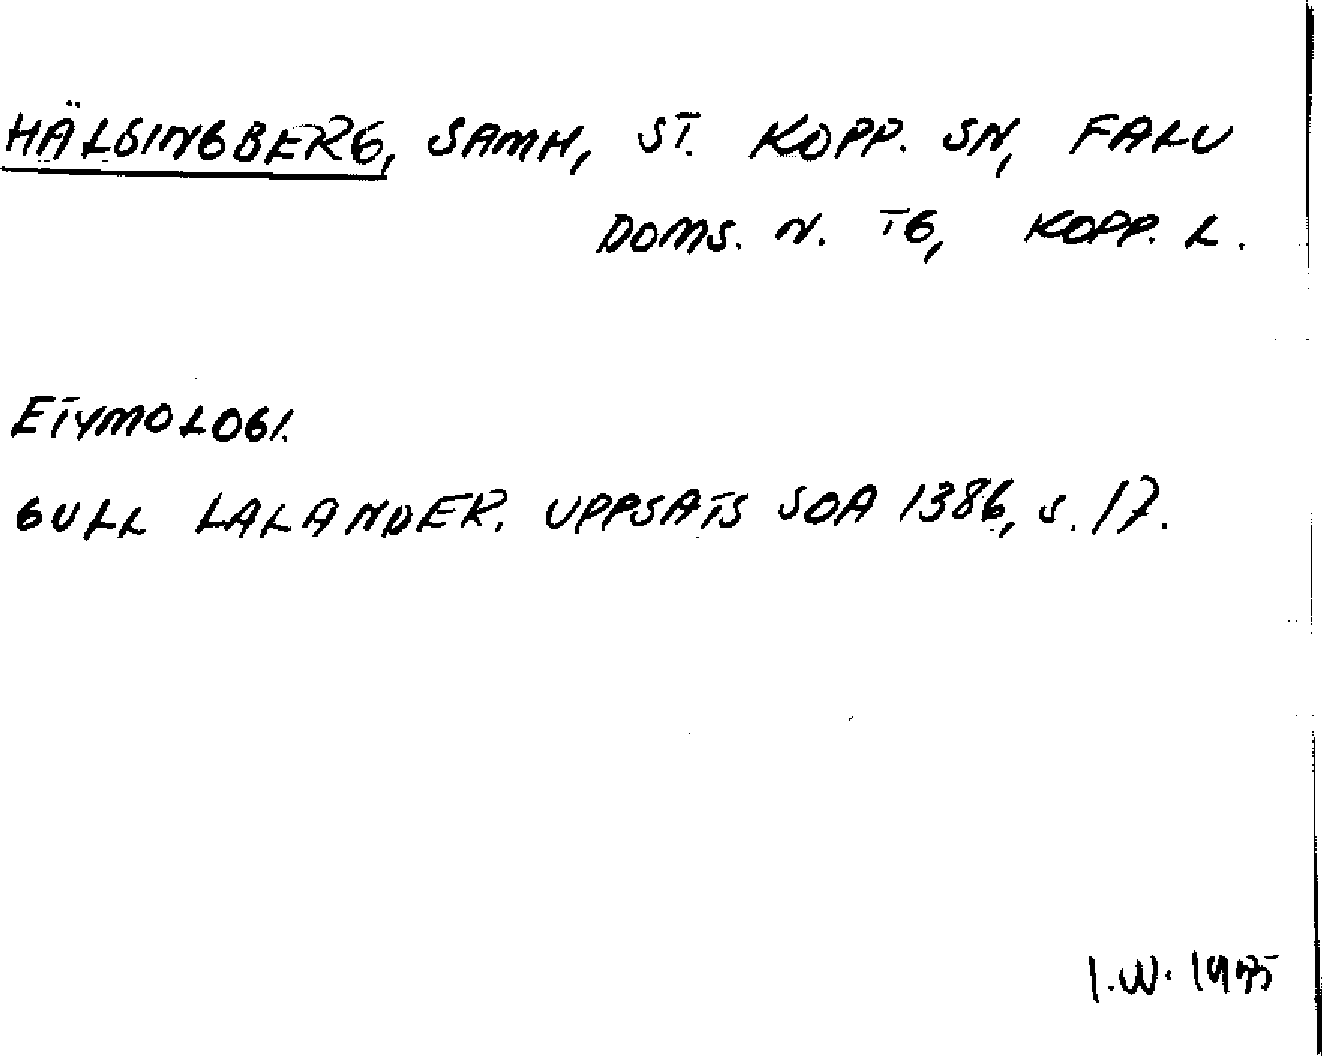 HÄLSINGBERG, SAMH, ST. KOPP. SN, FALU
DOMS. N. TG, KOPP. L.
ETYMOLOGI.
GULL LALANDER. UPPSATS SOA 1386, S. 17.
I.W. 1975